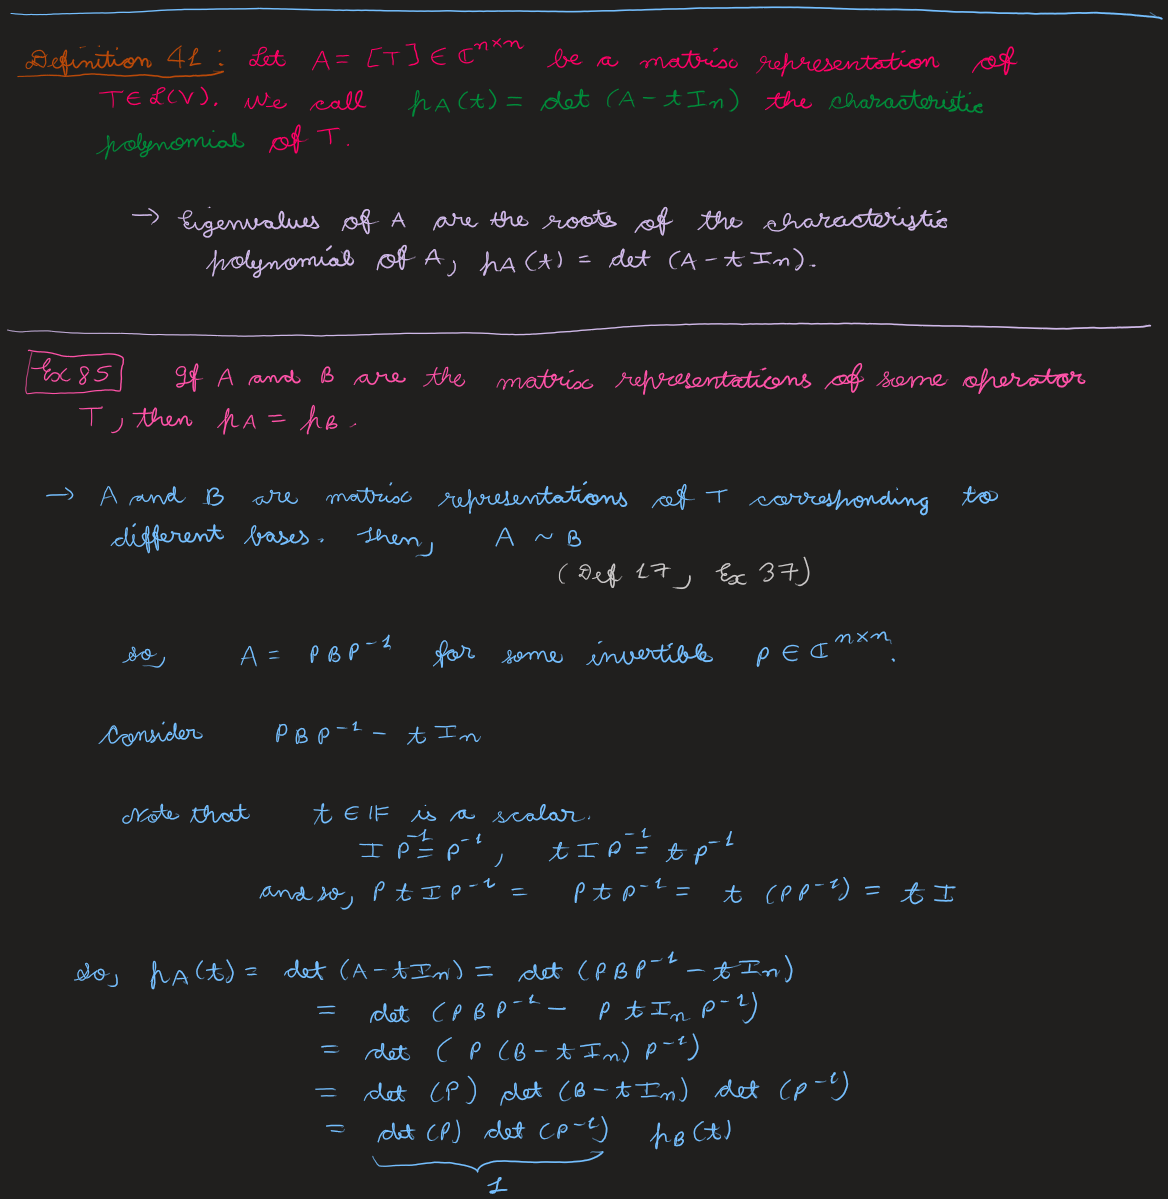 Definition 41: Let A = [T] ∈ ℂ^{n×n} be a matrix representation of
T ∈ ℒ(V). We call p_A(t) = det (A - t I_n) the characteristic
polynomial of T.
→ Eigenvalues of A are the roots of the characteristic
polynomial of A, p_A(t) = det (A - t I_n).
Ex 85 If A and B are the matrix representations of some operator
T, then p_A = p_B.
→ A and B are matrix representations of T corresponding to
different bases. Then, A ~ B
(Def 17, Ex 37)
so, A = P B P^{-1} for some invertible P ∈ ℂ^{n×n}.
Consider P B P^{-1} - t I_n
Note that t ∈ 𝔽 is a scalar.
I P^{-1} = P^{-1}, t I P^{-1} = t P^{-1}
and so, P t I P^{-1} = P t P^{-1} = t (P P^{-1}) = t I
So, p_A(t) = det (A - t I_n) = det (P B P^{-1} - t I_n)
= det (P B P^{-1} - P t I_n P^{-1})
= det (P (B - t I_n) P^{-1})
= det (P) det (B - t I_n) det (P^{-1})
= det (P) det (P^{-1}) p_B(t)
1